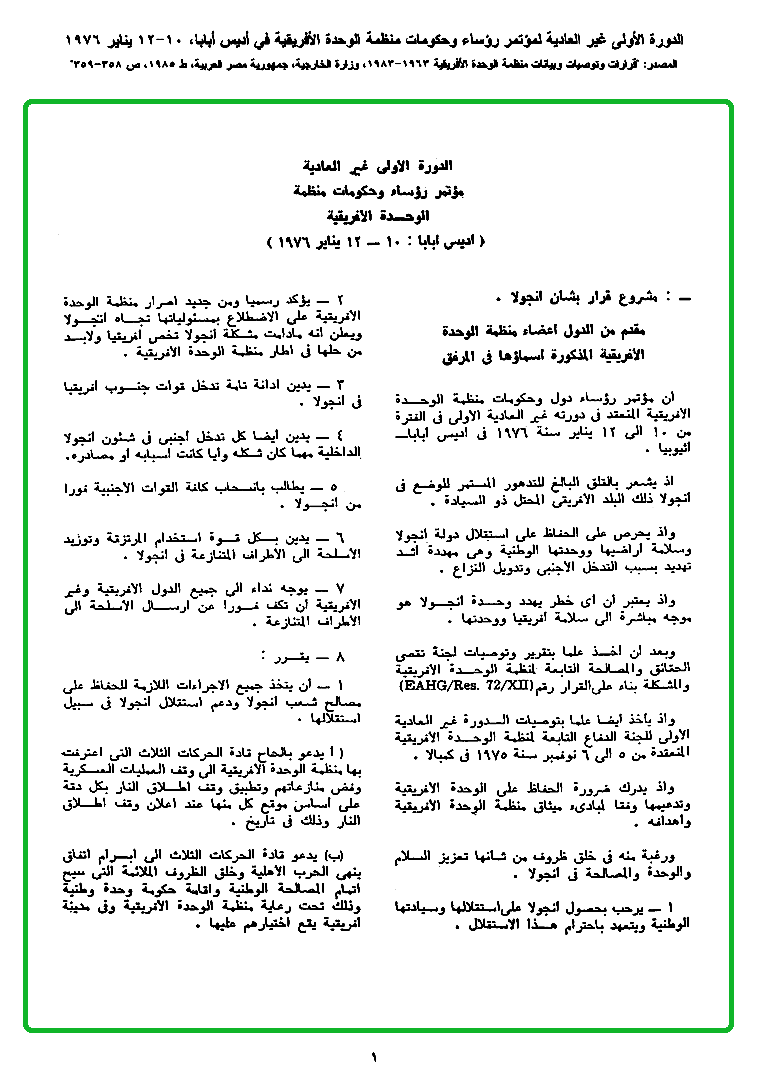 الدورة الأولى غير العادية لمؤتمر رؤساء وحكومات منظمة الوحدة الأفريقية في أديس أبابا، ١٠-١٢ يناير ١٩٧٦
المصدر: "قرارات وتوصيات وبيانات منظمة الوحدة الأفريقية ١٩٦٣-١٩٨٣، وزارة الخارجية، جمهورية مصر العربية، ط ١٩٨٥، ص ٣٥٨-٣٥٩"
الدورة الأولى غير العادية
مؤتمر رؤساء وحكومات منظمة
الوحدة الافريقية
( اديس ابابا : ١٠ — ١٢ يناير ١٩٧٦ )
— : مشروع قرار بشأن انجولا .
مقدم من الدول اعضاء منظمة الوحدة
الافريقية المذكورة اسماؤها فى المرفق
أن مؤتمر رؤساء دول وحكومات منظمة الوحدة
الافريقية المنعقد فى دورته غير العادية الأولى فى الفترة
من ١٠ الى ١٢ يناير سنة ١٩٧٦ فى اديس ابابا—
اثيوبيا .
اذ يشعر بالقلق البالغ للتدهور المستمر للوضع فى
انجولا ذلك البلد الافريقى المحتل ذو السيادة .
واذ يحرص على الحفاظ على استقلال دولة انجولا
وسلامة اراضيها ووحدتها الوطنية وهى مهددة اشد
تهديد بسبب التدخل الاجنبى وتدويل النزاع .
واذ يعتبر أن أى خطر يهدد وحدة انجولا هو
موجه مباشرة الى سلامة أفريقيا ووحدتها .
وبعد أن اخذ علما بتقرير وتوصيات لجنة تقصى
الحقائق والمصالحة التابعة لمنظمة الوحدة الافريقية
والمشكلة بناء على القرار رقم (EAHG/Res. 72/XII)
واذ يأخذ ايضا علما بتوصيات الدورة غير العادية
الأولى للجنة الدفاع التابعة لمنظمة الوحدة الافريقية
المنعقدة من ٥ الى ٦ نوفمبر سنة ١٩٧٥ فى كمبالا .
واذ يدرك ضرورة الحفاظ على الوحدة الافريقية
وتدعيمها وفقا لمبادىء ميثاق منظمة الوحدة الافريقية
واهدافه .
ورغبة منه فى خلق ظروف من شانها تعزيز السلام
والوحدة والمصالحة فى انجولا .
١ — يرحب بحصول انجولا على استقلالها وسيادتها
الوطنية ويتعهد باحترام هذا الاستقلال .
٢ — يؤكد رسميا ومن جديد اصرار منظمة الوحدة
الافريقية على الاضطلاع بمسئولياتها تجاه انجولا
ويعلن انه مادامت مشكلة انجولا تخص أفريقيا ولابد
من حلها فى اطار منظمة الوحدة الافريقية .
٣ — يدين ادانة تامة تدخل قوات جنوب افريقيا
فى انجولا .
٤ — يدين ايضا كل تدخل أجنبى فى شئون انجولا
الداخلية مهما كان شكله وأيا كانت أسبابه أو مصادره.
٥ — يطالب بانسحاب كافة القوات الاجنبية فورا
من أنجولا .
٦ — يدين بكل قوة استخدام المرتزقة وتوزيد
الاسلحة الى الأطراف المتنازعة فى انجولا .
٧ — يوجه نداء الى جميع الدول الافريقية وغير
الافريقية أن تكف فورا عن ارسال الأسلحة الى
الأطراف المتنازعة .
٨ — يقرر :
١ — أن يتخذ جميع الاجراءات اللازمة للحفاظ على
مصالح شعب أنجولا ودعم استقلال انجولا فى سبيل
استقلالها .
( أ ) يدعو بالحاح قادة الحركات الثلاث التى اعترفت
بها منظمة الوحدة الافريقية الى وقف العمليات العسكرية
وفض منازعاتهم وتطبيق وقف اطلاق النار بكل دقة
على اساس موقع كل منها عند اعلان وقف اطلاق
النار وذلك فى تاريخ .
(ب) يدعو قادة الحركات الثلاث الى ابرام اتفاق
ينهى الحرب الأهلية وخلق الظروف الملائمة التى تبيح
اتمام المصالحة الوطنية واقامة حكومة وحدة وطنية
وذلك تحت رعاية منظمة الوحدة الافريقية وفى مدينة
افريقية يقع اختيارهم عليها .
١